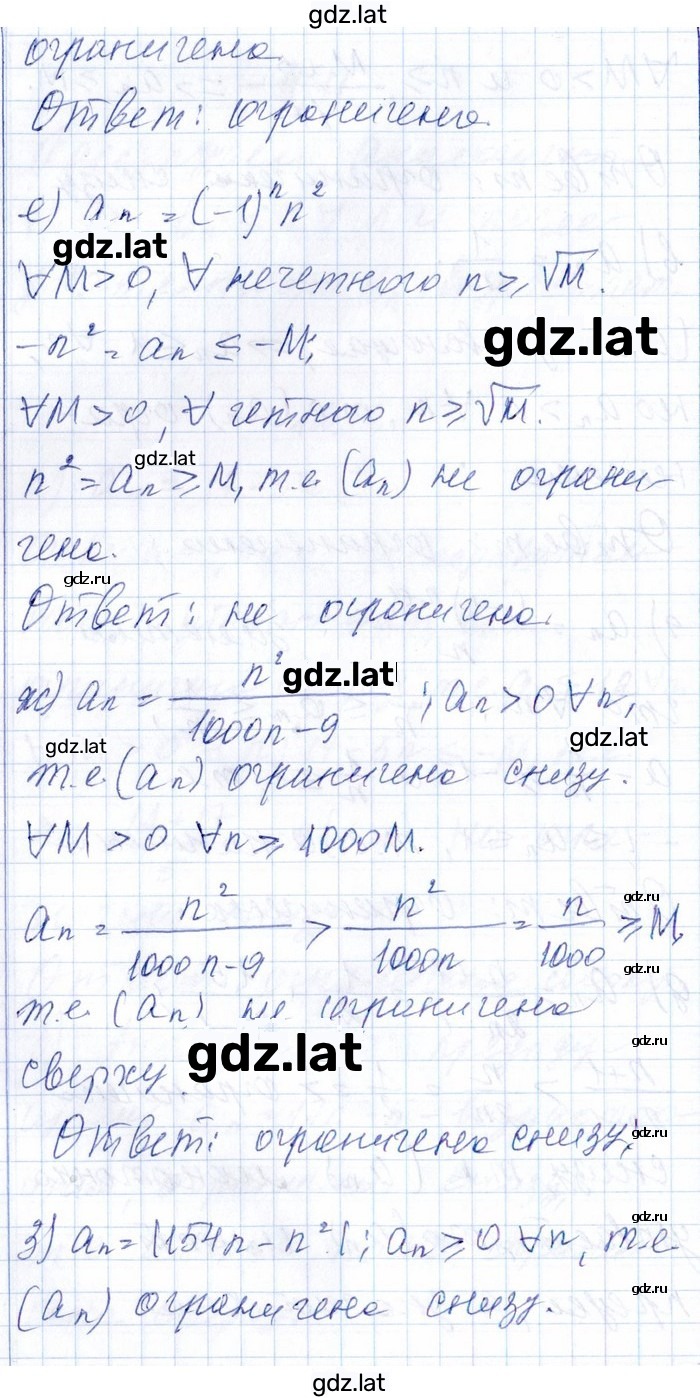 gdz.lat
ограничена
Ответ: ограничена.
е) aₙ = (-1)ⁿn²
gdz.lat
∀M>0, ∀ нечетного n ≥ √M.
-n² = aₙ ≤ -M;
gdz.lat
∀M>0, ∀ четного n ≥ √M.
gdz.lat
n² = aₙ ≥ M, т.е. (aₙ) не ограни-
чена.
gdz.ru
Ответ: не ограничена.
ж) aₙ = n²/(1000n-9); aₙ > 0 ∀n,
gdz.lat
gdz.lat
gdz.lat
т.е. (aₙ) ограничена снизу.
∀M > 0 ∀n ≥ 1000M.
gdz.ru
aₙ = n²/(1000n-9) > n²/1000n = n/1000 ≥ M,
gdz.ru
т.е. (aₙ) не ограничена
gdz.ru
сверху.
gdz.lat
Ответ: ограничена снизу;
gdz.ru
gdz.ru
з) aₙ = |154n - n²|; aₙ ≥ 0 ∀n, т.е
gdz.ru
(aₙ) ограничена снизу.
gdz.lat